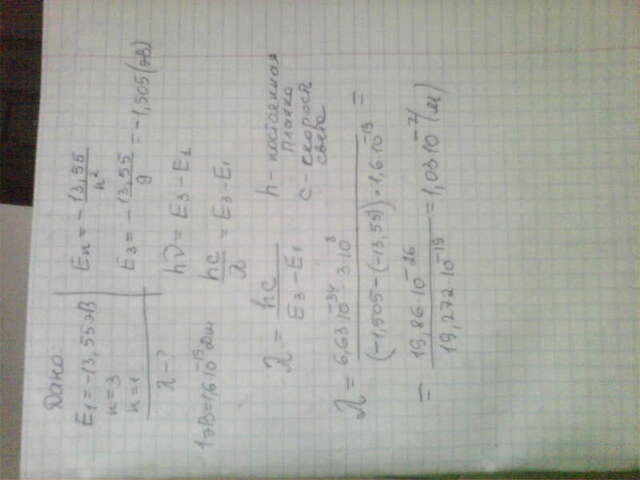 Дано:
E₁=-13,55эВ
n=3
n=1
λ-?
1эВ=1,6·10⁻¹⁹Дж
Eₙ = - 13,55 / n²
E₃ = - 13,55 / 9 = -1,505(эВ)
hν = E₃ - E₁
hc / λ = E₃ - E₁
λ = hc / E₃ - E₁
h - постоянная
Планка
c - скорость
света
λ = 6,63·10⁻³⁴·3·10⁸ / (-1,505-(-13,55))·1,6·10⁻¹⁹ =
= 19,86·10⁻²⁶ / 19,272·10⁻¹⁹ = 1,03·10⁻⁷(м)